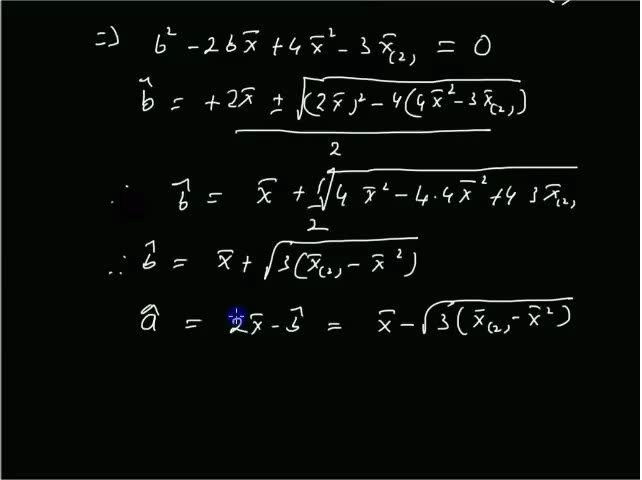 ⇒) b² - 2bx̄ + 4x̄² - 3x̄₍₂₎ = 0
b̂ = +2x̄ ± √((2x̄)² - 4(4x̄² - 3x̄₍₂₎)) / 2
∴ b̂ = x̄ + 1/2 √(4x̄² - 4·4x̄² + 4 3x̄₍₂₎)
∴ b̂ = x̄ + √(3(x̄₍₂₎ - x̄²))
â = 2x̄ - b̂ = x̄ - √(3(x̄₍₂₎ - x̄²))